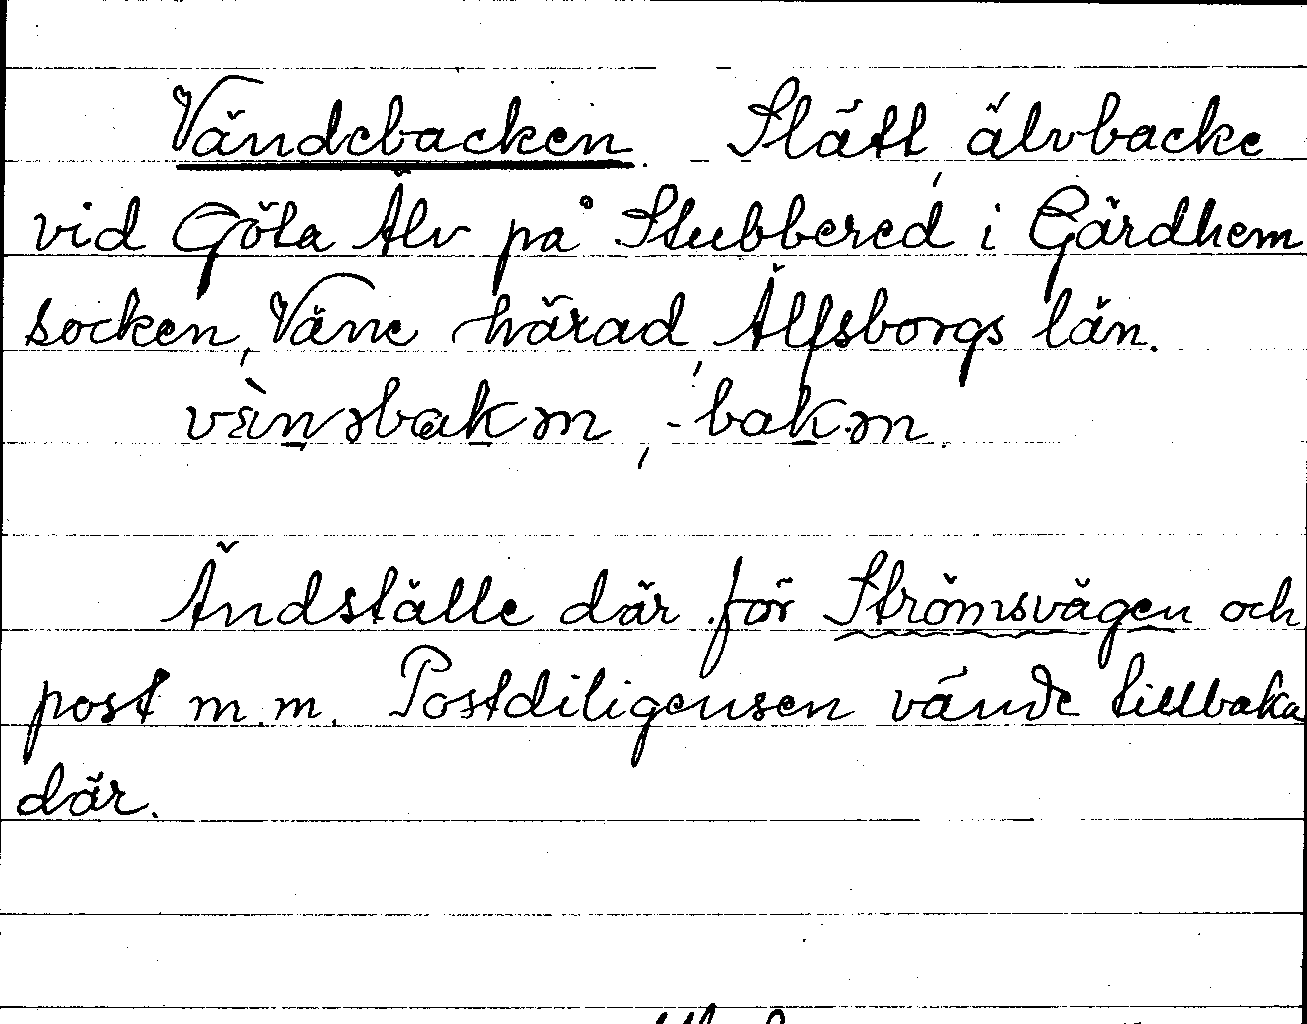 Vändebacken. Slätt älvbacke
vid Göta Älv på Stubbered i Gärdhem
socken, Väne härad, Älfsborgs län.
vänəbakən, -bakən.
Ändställe där för Strömsvägen och
post m.m. Postdiligensen vände tillbaka
där.